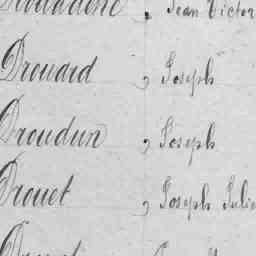 Jean Victor
Drouard , Joseph
Droudun , Joseph
Drouet , Joseph Julie